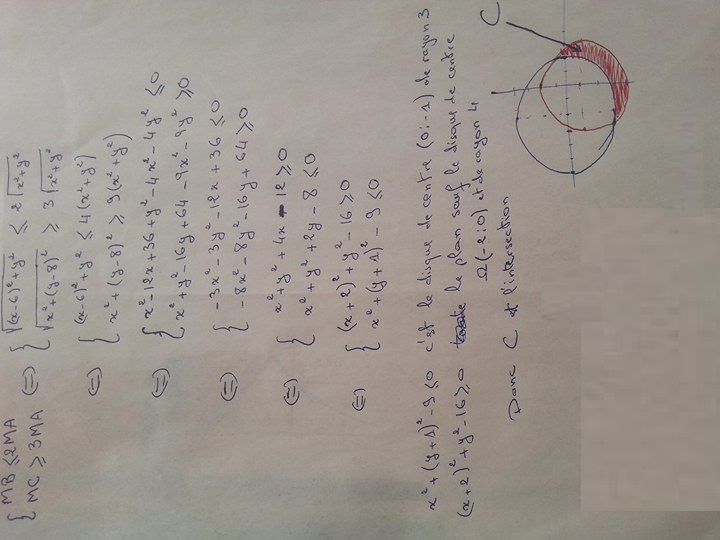 { MB ≤ 2MA (=) { √(x-6)²+y² ≤ 2√x²+y²
MC ≥ 3MA √x²+(y-8)² ≥ 3√x²+y²
(=) { (x-6)²+y² ≤ 4(x²+y²)
x²+(y-8)² ≥ 9(x²+y²)
(=) { x²-12x+36+y²-4x²-4y² ≤ 0
x²+y²-16y+64-9x²-9y² ≥ 0
(=) { -3x²-3y²-12x+36 ≤ 0
-8x²-8y²-16y+64 ≥ 0
(=) { x²+y²+4x-12 ≥ 0
x²+y²+2y-8 ≤ 0
(=) { (x+2)²+y²-16 ≥ 0
x²+(y+1)²-9 ≤ 0
x²+(y+1)²-9 ≤ 0 c'est le disque de centre (0;-1) de rayon 3
(x+2)²+y²-16 ≥ 0 le plan sauf le disque de centre
Ω(-2;0) et de rayon 4
Donc C est l'intersection
C